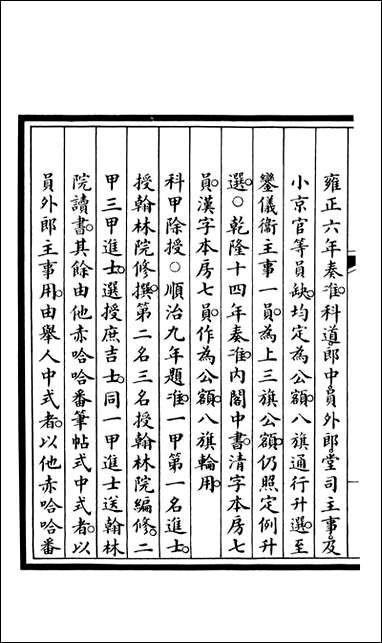 雍正六年奏准。科道郎中。員外郎。堂司主事。及
小京官等員缺。均定為公額。八旗通行升選。至
鑾儀衞主事一員。為上三旗公額。仍照定例升
選。○乾隆十四年奏准。內閣中書。清字本房七
員。漢字本房七員。作為公額。八旗輪用。
科甲除授○順治九年題准。一甲第一名進士。
授翰林院修撰。第二名三名授翰林院編修。二
甲三甲進士。選授庶吉士。同一甲進士送翰林
院讀書。其餘由他赤哈哈番筆帖式中式者。以
員外郎主事用。由舉人中式者。以他赤哈哈番